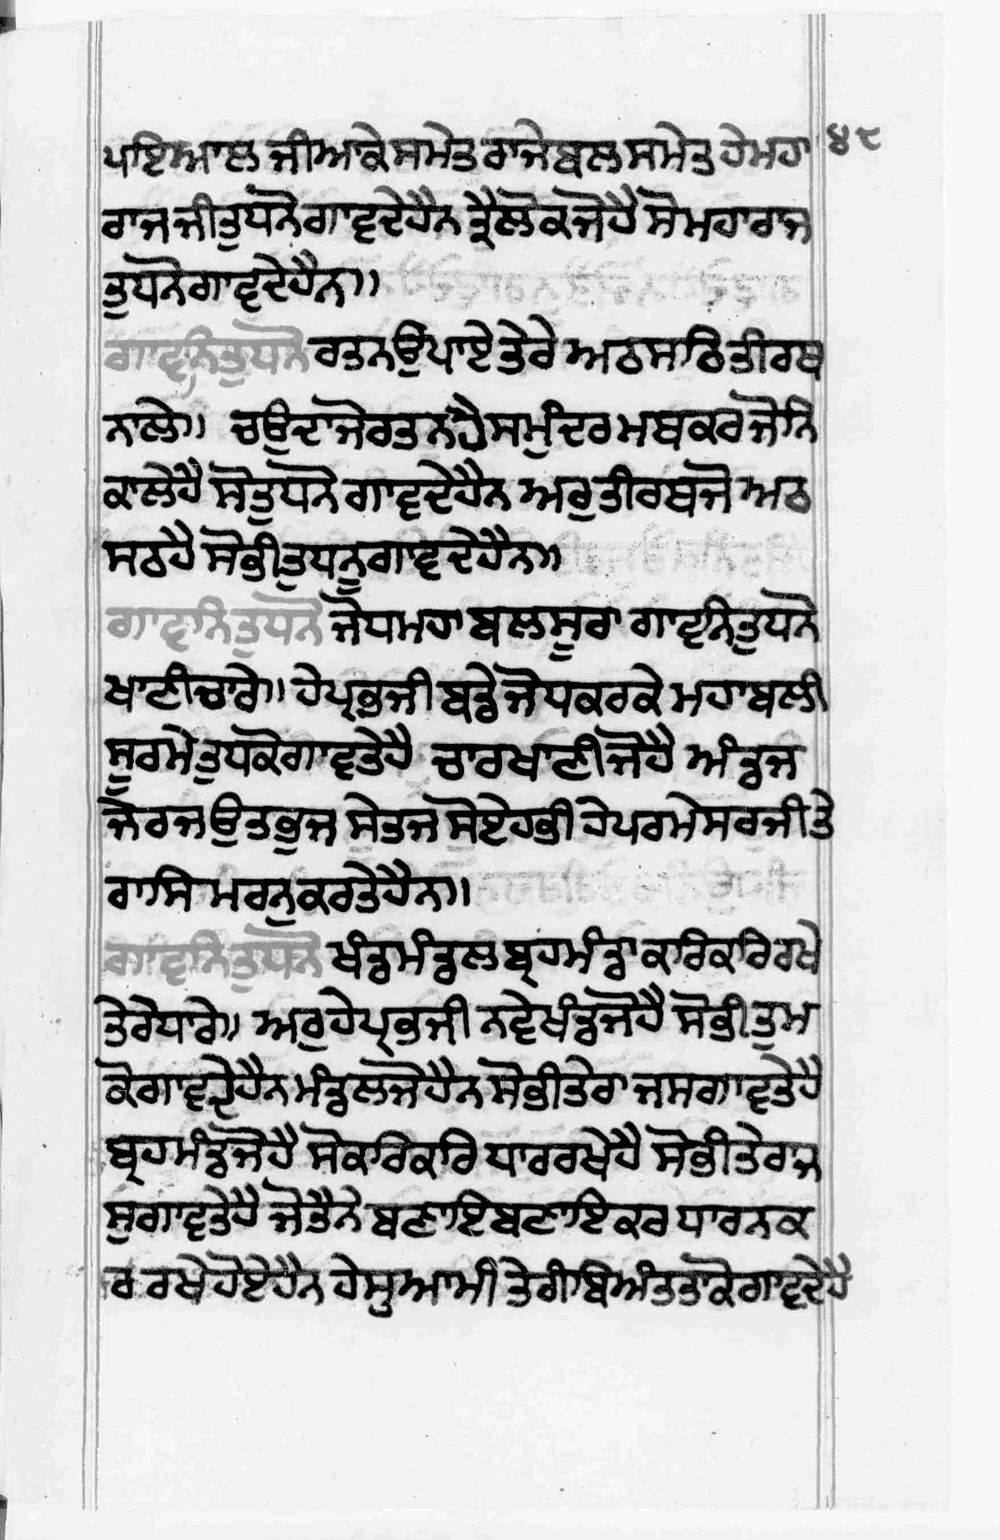 ਪਾਇਆਲ ਜੀਆਕੇ ਸਮੇਤ ਰਾਜੇਬਲ ਸਮੇਤ ਹੇਮਹਾ ੪੯
ਰਾਜ ਜੀਤੁਧਨੋ ਗਾਵੁਦੇਹੈਨ ਤ੍ਰੈਲੋਕ ਜੋਹੈ ਸੋ ਮਹਾਰਾਜ
ਤੁਧਨੋਗਾਵੁਦੇਹੈਨ॥
ਗਾਵਨਿਤੁਧਨੋ ਰਤਨਉਪਾਏਤੇਰੇ ਅਠਸਠਿਤੀਰਥ
ਨਾਲੇ॥ ਚਉਦਾਜੋਰਤਨਹੈਸਮੁੰਦਰਮਥਕਰਜੋਨਿ
ਕਾਲੇਹੈ ਸੋਤੁਧਨੋ ਗਾਵੁਦੇਹੈਨ ਅਰੁਤੀਰਥਜੋ ਅਠ
ਸਠਹੈ ਸੋਭੀਤੁਧਨੂਗਾਵੁਦੇਹੈਨ॥
ਗਾਵਨਿਤੁਧਨੋ ਜੋਧਮਹਾਬਲਸੂਰਾ ਗਾਵਨਿਤੁਧਨੋ
ਖਾਣੀਚਾਰੇ॥ ਹੇਪ੍ਰਭਜੀ ਬਡੇਜੋਧਕਰਕੇ ਮਹਾਬਲੀ
ਸੂਰਮੇਤੁਧਕੋਗਾਵੁਤੇਹੈ ਚਾਰਖਾਣੀਜੋਹੈ ਅੰਡਜ
ਜੇਰਜਉਤਭੁਜ ਸੇਤਜ ਸੋਏਹਭੀ ਹੇਪਰਮੇਸਰਜੀਤੇ
ਰਾਸਿਮਰਨੁਕਰਤੇਹੈਨ॥
ਗਾਵਨਿਤੁਧਨੋ ਖੰਡਮੰਡਲਬ੍ਰਹਮੰਡਾਕਰਿਕਰਿਰਖੇ
ਤੇਰੇਧਾਰੇ॥ ਅਰੁਹੇਪ੍ਰਭਜੀ ਨਵੇਖੰਡਜੋਹੈ ਸੋਭੀਤੁਮ
ਕੋਗਾਵੁਦੇਹੈਨਮੰਡਲਜੋਹੈਨਸੋਭੀਤੇਰਾ ਜਸਗਾਵੁਤੇਹੈ
ਬ੍ਰਹਮੰਡਜੋਹੈ ਸੋਕਰਿਕਰਿ ਧਾਰਰਖੇਹੈ ਸੋਭੀਤੇਰਾਜ
ਸੁਗਾਵੁਤੇਹੈ ਜੋਤੈਨੇ ਬਣਾਇਬਣਾਇਕਰ ਧਾਰਨਕ
ਰ ਰਖੇਹੋਏਹੈਨ ਹੇਸੁਆਮੀ ਤੇਰੀਬਿਅੰਤਤਾਕੋਗਾਵੁਦੇਹੈ